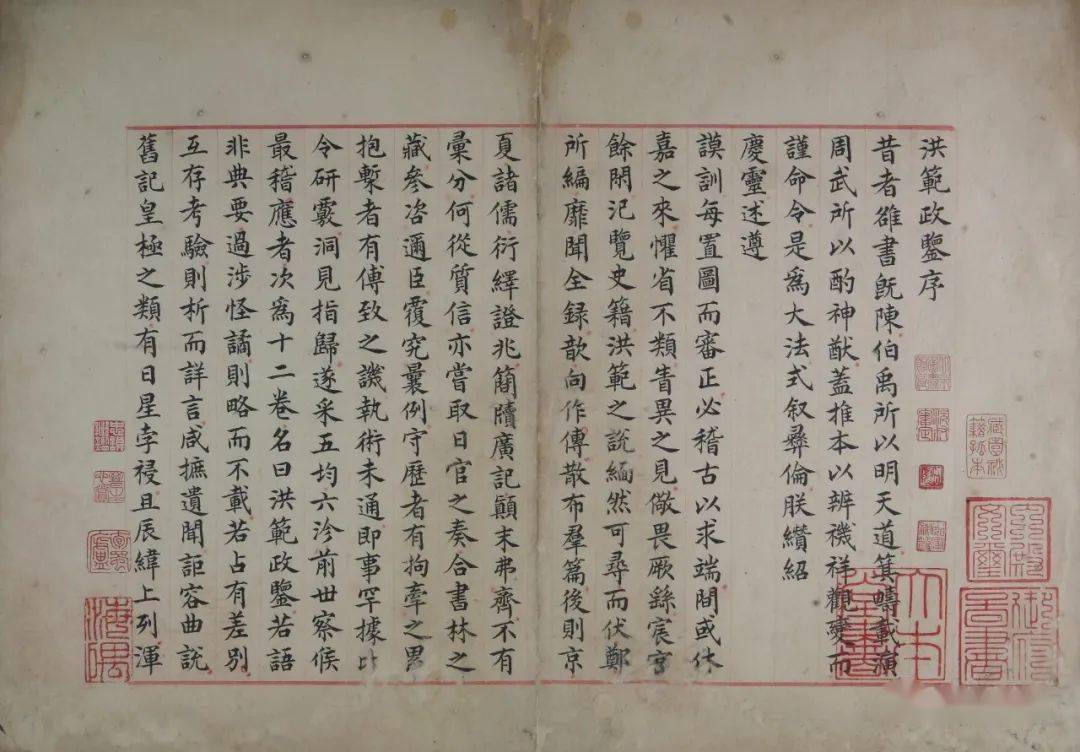 洪範政鑒序
昔者雒書旣陳伯禹所以明天道箕疇載演
周武所以酌神猷蓋推本以辨機祥觀變而
謹命令是爲大法式叙彝倫朕纉紹
慶靈述遵
謨訓每置圖而審正必稽古以求端間或休
嘉之來懼省不類眚異之見儆畏厥繇宸宮
餘閑汜覽史籍洪範之說緬然可尋而伏鄭
所編靡聞全録歆向作傳散布羣篇後則京
夏諸儒衍繹證兆簡牘廣記顛末弗齊不有
彙分何從質信亦嘗取日官之奏合書林之
藏參咨邇臣覆究曩例守歷者有拘牽之累
抱槧者有傅致之譏執術未通即事罕據比
令研覈洞見指歸遂采五均六沴前世察候
最稽應者次爲十二卷名曰洪範政鑒若語
非典要過涉怪譎則略而不載若占有差別
互存考驗則析而詳言咸摭遺聞詎容曲說
舊記皇極之類有日星孛祲且辰緯上列渾
藏園秘籍孤本
御府圖書
大本堂書